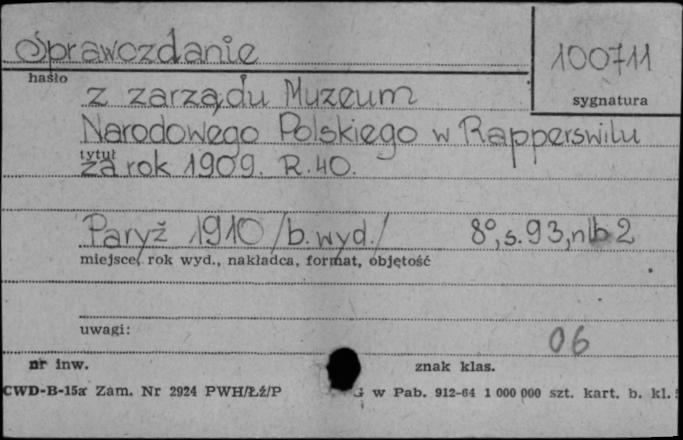 Sprawozdanie
100711
hasło
sygnatura
z zarządu Muzeum
Narodowego Polskiego w Rapperswilu
tytuł
za rok 1909. R.40.
Paryż 1910 /b.wyd./ 8°, s.93, nlb 2
miejsce, rok wyd., nakładca, format, objętość
uwagi:
06
nr inw.
znak klas.
CWD-B-15a Zam. Nr 2924 PWH/Łź/P
w Pab. 912-64 1 000 000 szt. kart. b. kl.